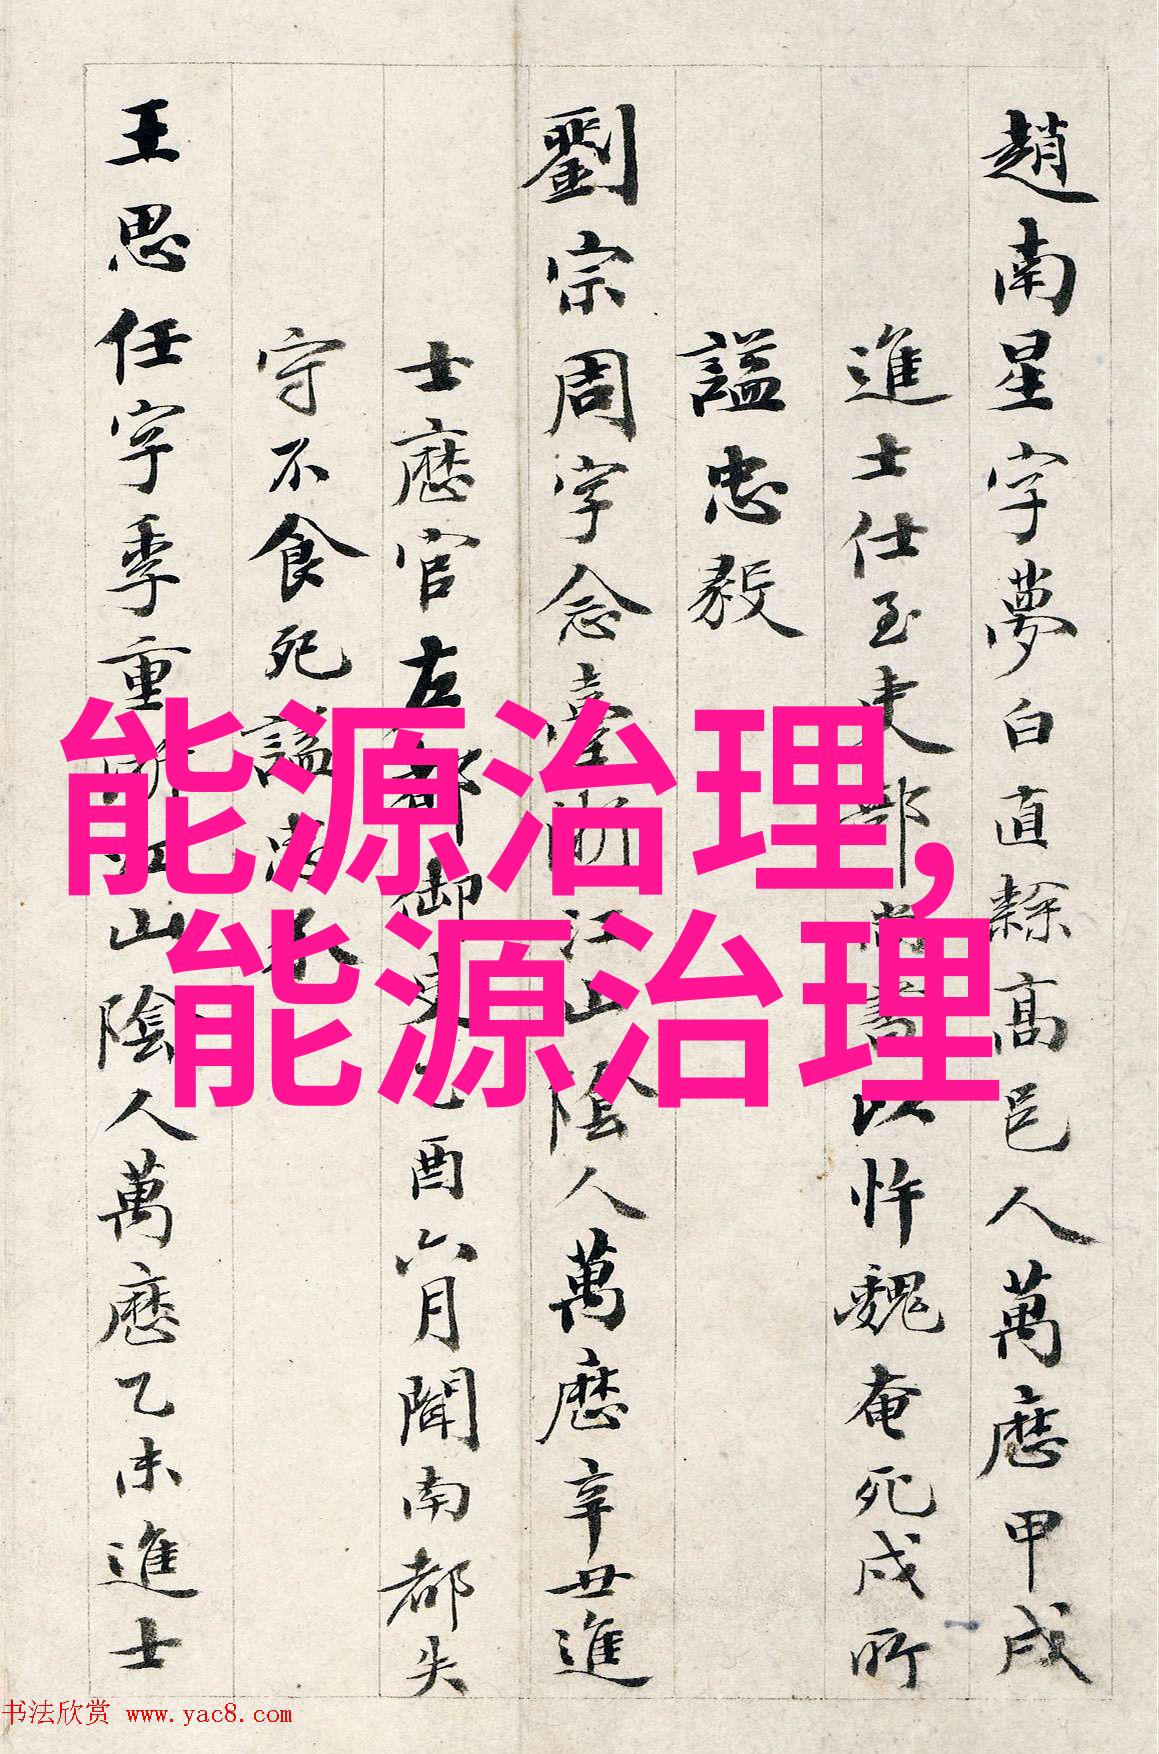 趙南星字夢白直隸高邑人萬曆甲戌
進士仕至吏部尚書以忤魏奄死戍所
謚忠毅
劉宗周字念臺浙江山陰人萬曆辛丑進
士歷官左都御史乙酉六月聞南都失
守不食死謚
王思任字季重浙江山陰人萬曆乙未進士
能源治理,
能源治理
书法欣赏 www.yac8.com